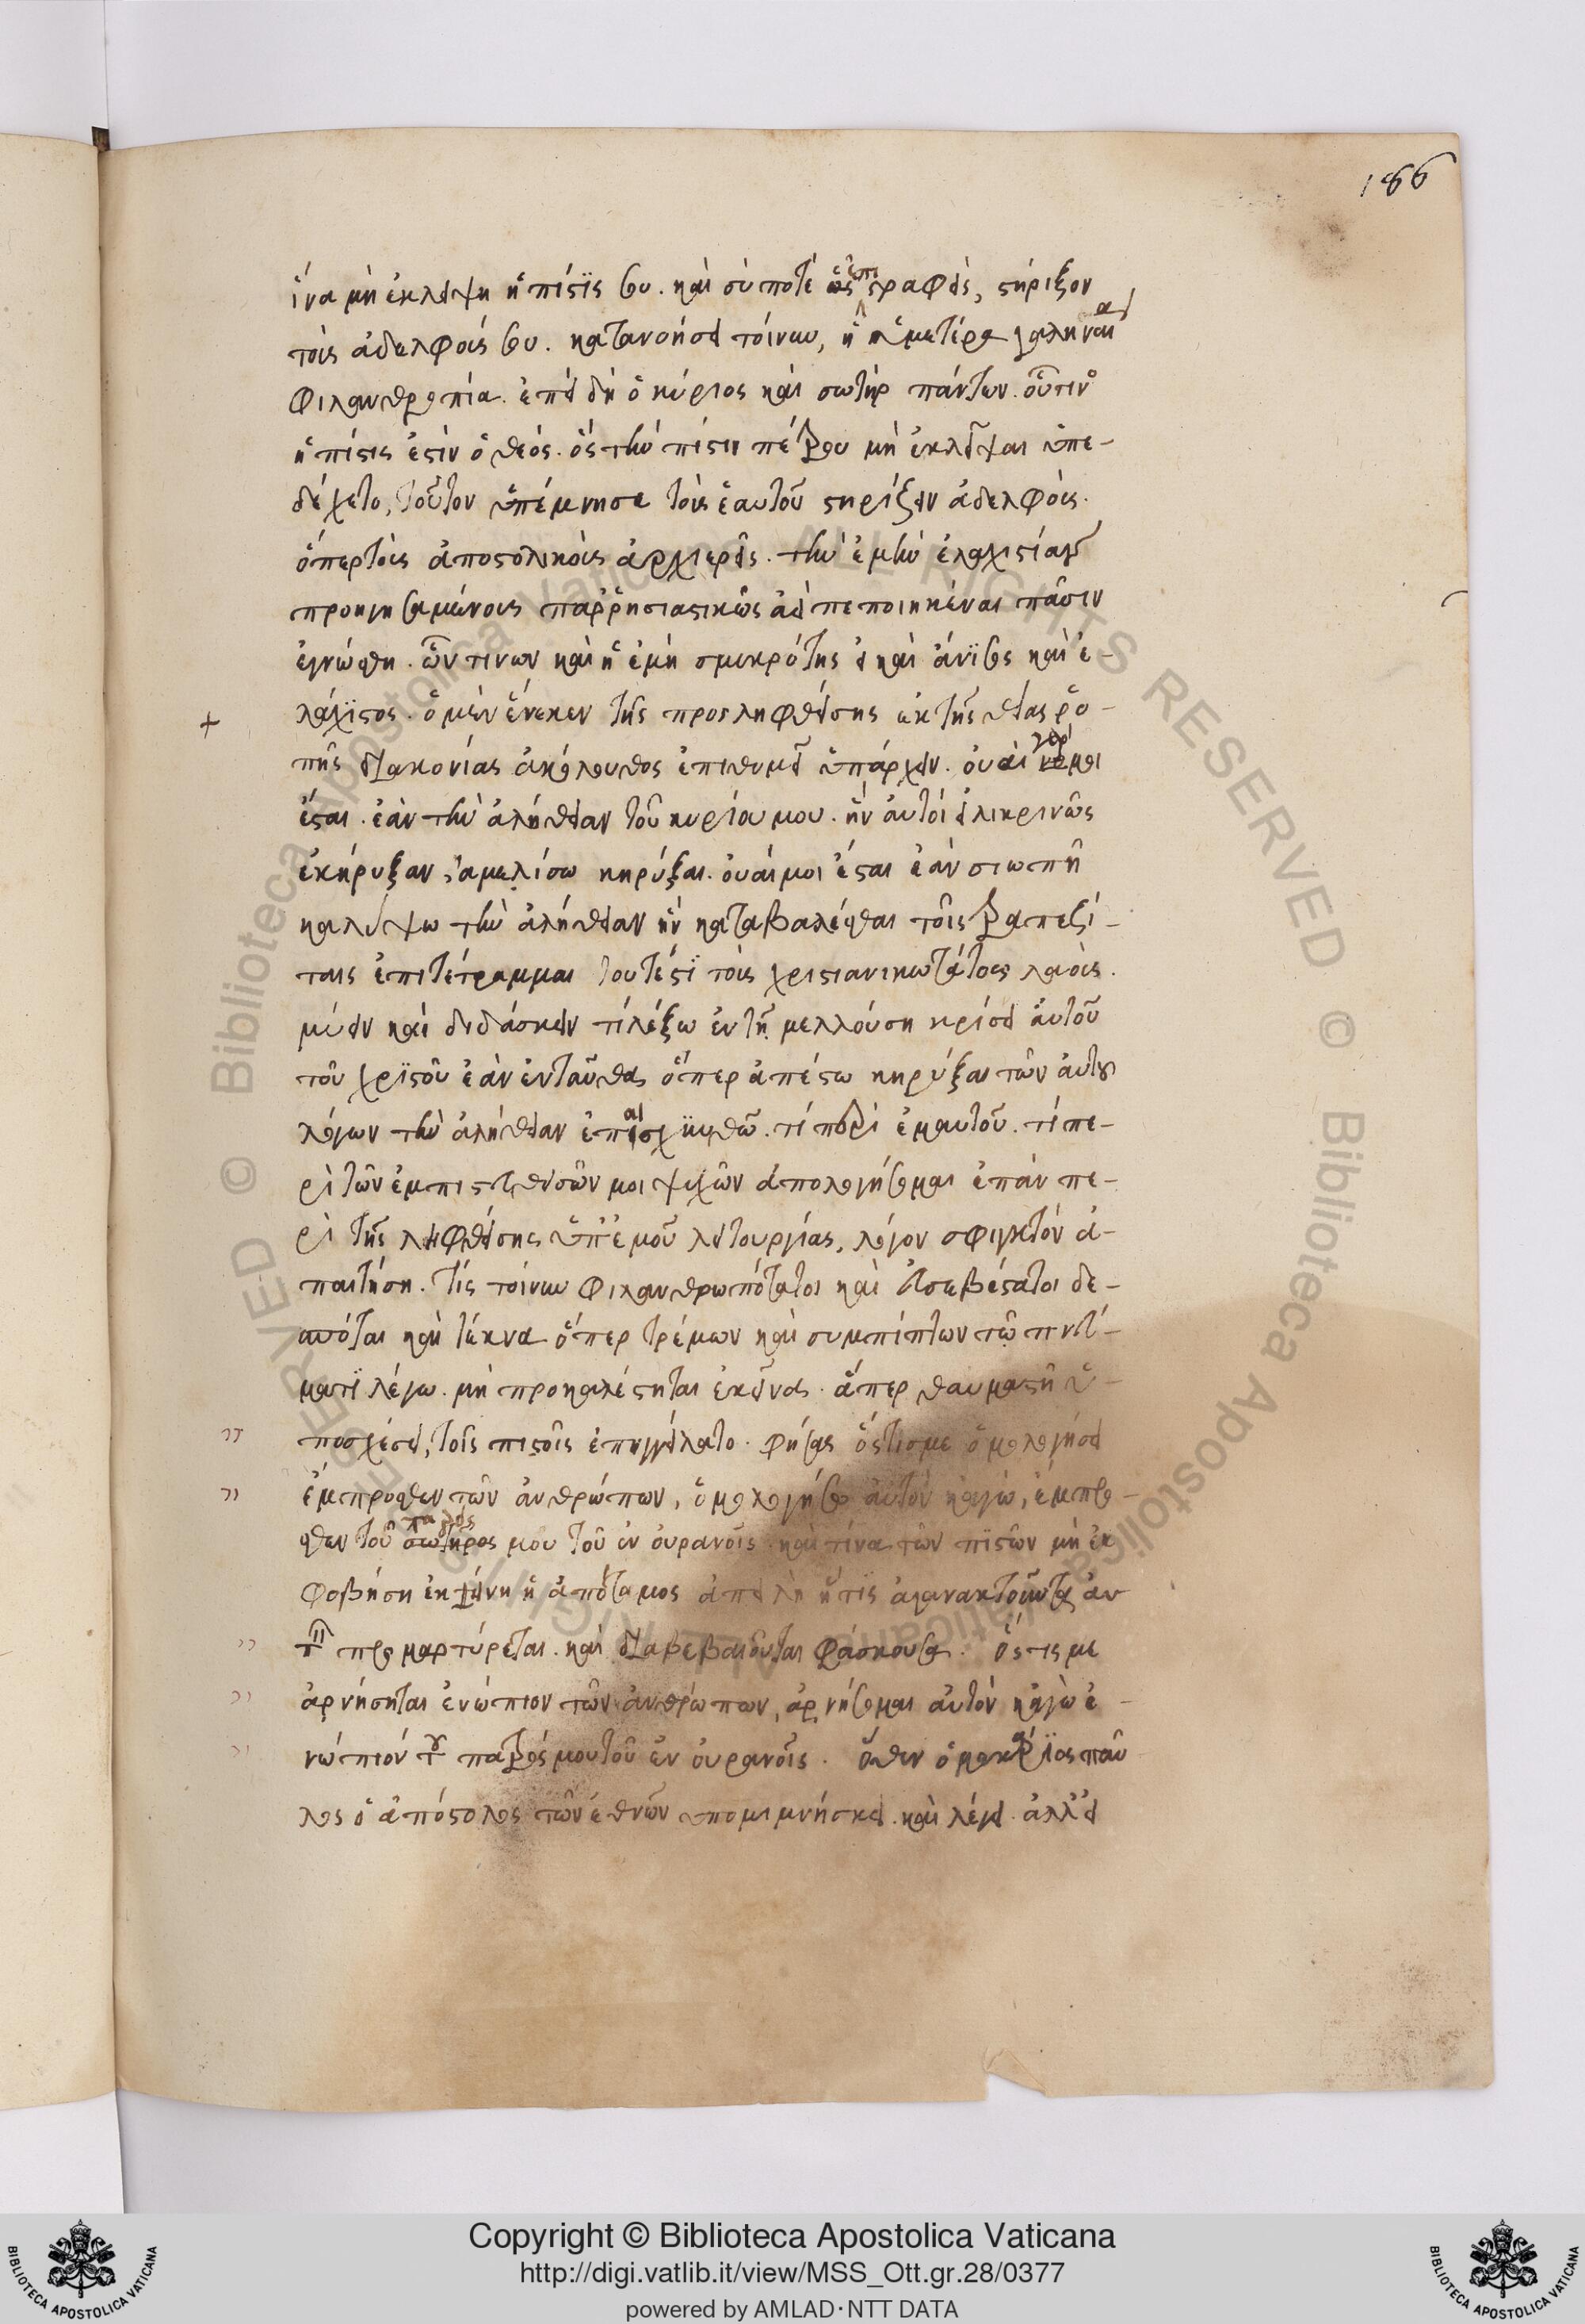 186
ἵνα μὴ ἐκλείψῃ ἡ πίστϊς σου. καὶ σύ ποτὲ ἐπιστραφεὶς, στήριξον
τοὺς ἀδελφούς σου. κατανοήσει τοίνυν, ἡ ἡμετέρα γαληναία
φιλανθρωπία. ἐπειδὴ ὁ κύριος καὶ σωτὴρ πάντων. οὗτινος
ἡ πίστις ἐστὶν ὁ θεός. ὃς τὴν πίστιν πέτρου μὴ ἐκλεῖψαι ὑπε-
δέχετο, τοῦτον ὑπέμνησε τοὺς ἑαυτοῦ στηρίξειν ἀδελφούς.
ὅπερ τοὺς ἀποστολικοὺς ἀρχιερεῖς. τὴν ἐμὴν ἐλαχιστίαν
προηγησαμένους παῤῥησιαστικῶς ἀεὶ πεποιηκέναι πᾶσιν
ἐγνώσθη. ὧν τινων καὶ ἡ ἐμὴ σμικρότης εἰ καὶ ἄνϊσος καὶ ἐ-
λάχϊστος. ὅμως ἕνεκεν τῆς προσληφθείσης ἐκ τῆς θείας ῥο-
πῆς διακονίας ἀκόλουθος ἐπιθυμεῖ ὑπάρχειν. οὐαὶ γάρ μοι
ἔσται. ἐὰν τὴν ἀλήθειαν τοῦ κυρίου μου. ἣν αὐτοὶ εἰλικρινῶς
ἐκήρυξαν, ἀμελήσω κηρύξαι. οὐαί μοι ἔσται ἐὰν σιωπῇ
καλύψω τὴν ἀλήθειαν ἣν καταβαλέσθαι τοῖς τραπεζί-
ταις ἐπιτέτραμμαι τουτέστϊ τοὺς χριστιανικωτάτους λαοὺς.
μύειν καὶ διδάσκειν τί λέξω ἐν τῇ μελλούσῃ κρίσει αὐτοῦ
τοῦ χρϊστοῦ ἐὰν ἐνταῦθα, ὅπερ ἀπέστω κηρύξαι τῶν αὐτοῦ
λόγων τὴν ἀλήθειαν ἐπαισχυνθῶ. τί περὶ ἐμαυτοῦ. τί πε-
ρὶ τῶν ἐμπιστευθεισῶν μοι ψυχῶν ἀπολογήσομαι ἐπὰν πε-
ρὶ τῆς ληφθείσης ὑπ' ἐμοῦ λειτουργίας, λόγον σφιγκτὸν ἀ-
παιτήσῃ. τίς τοίνυν φιλανθρωπότατοι καὶ εὐσεβέστατοι δε-
σπόται καὶ τέκνα ὅπερ τρέμων καὶ συμπίπτων τῷ πνεύ-
ματϊ λέγω. μὴ προκαλέσηται ἐκεῖνα. ἅπερ θαυμαστῇ ὑ-
ποσχέσει, τοῖς πιστοῖς ἐπηγγείλατο. φήσας ὅστις με ὁμολογήσει
ἔμπροσθεν τῶν ἀνθρώπων, ὁμολογήσω αὐτὸν κἀγὼ, ἔμπρο-
σθεν τοῦ πατρός μου τοῦ ἐν οὐρανοῖς. καὶ τίνα τῶν πϊστῶν μὴ ἐκ
φοβήσῃ ἐκείνη ἡ ἀπότομος ἀπειλὴ ἥτϊς ἀγανακτοῦντα αὐ
τὸν προμαρτύρεται. καὶ διαβεβαιοῦται φάσκουσα. ὅστις με
ἀρνήσηται ἐνώπιον τῶν ἀνθρώπων, ἀρνήσομαι αὐτὸν κἀγὼ ἐ-
νώπιόν τοῦ πατρός μου τοῦ ἐν οὐρανοῖς. ὅθεν ὁ μακάριος παῦ
λος ὁ ἀπόστολος τῶν ἐθνῶν ὑπομιμνήσκει. καὶ λέγει. ἀλλ' εἰ
Copyright © Biblioteca Apostolica Vaticana
http://digi.vatlib.it/view/MSS_Ott.gr.28/0377
powered by AMLAD・NTT DATA